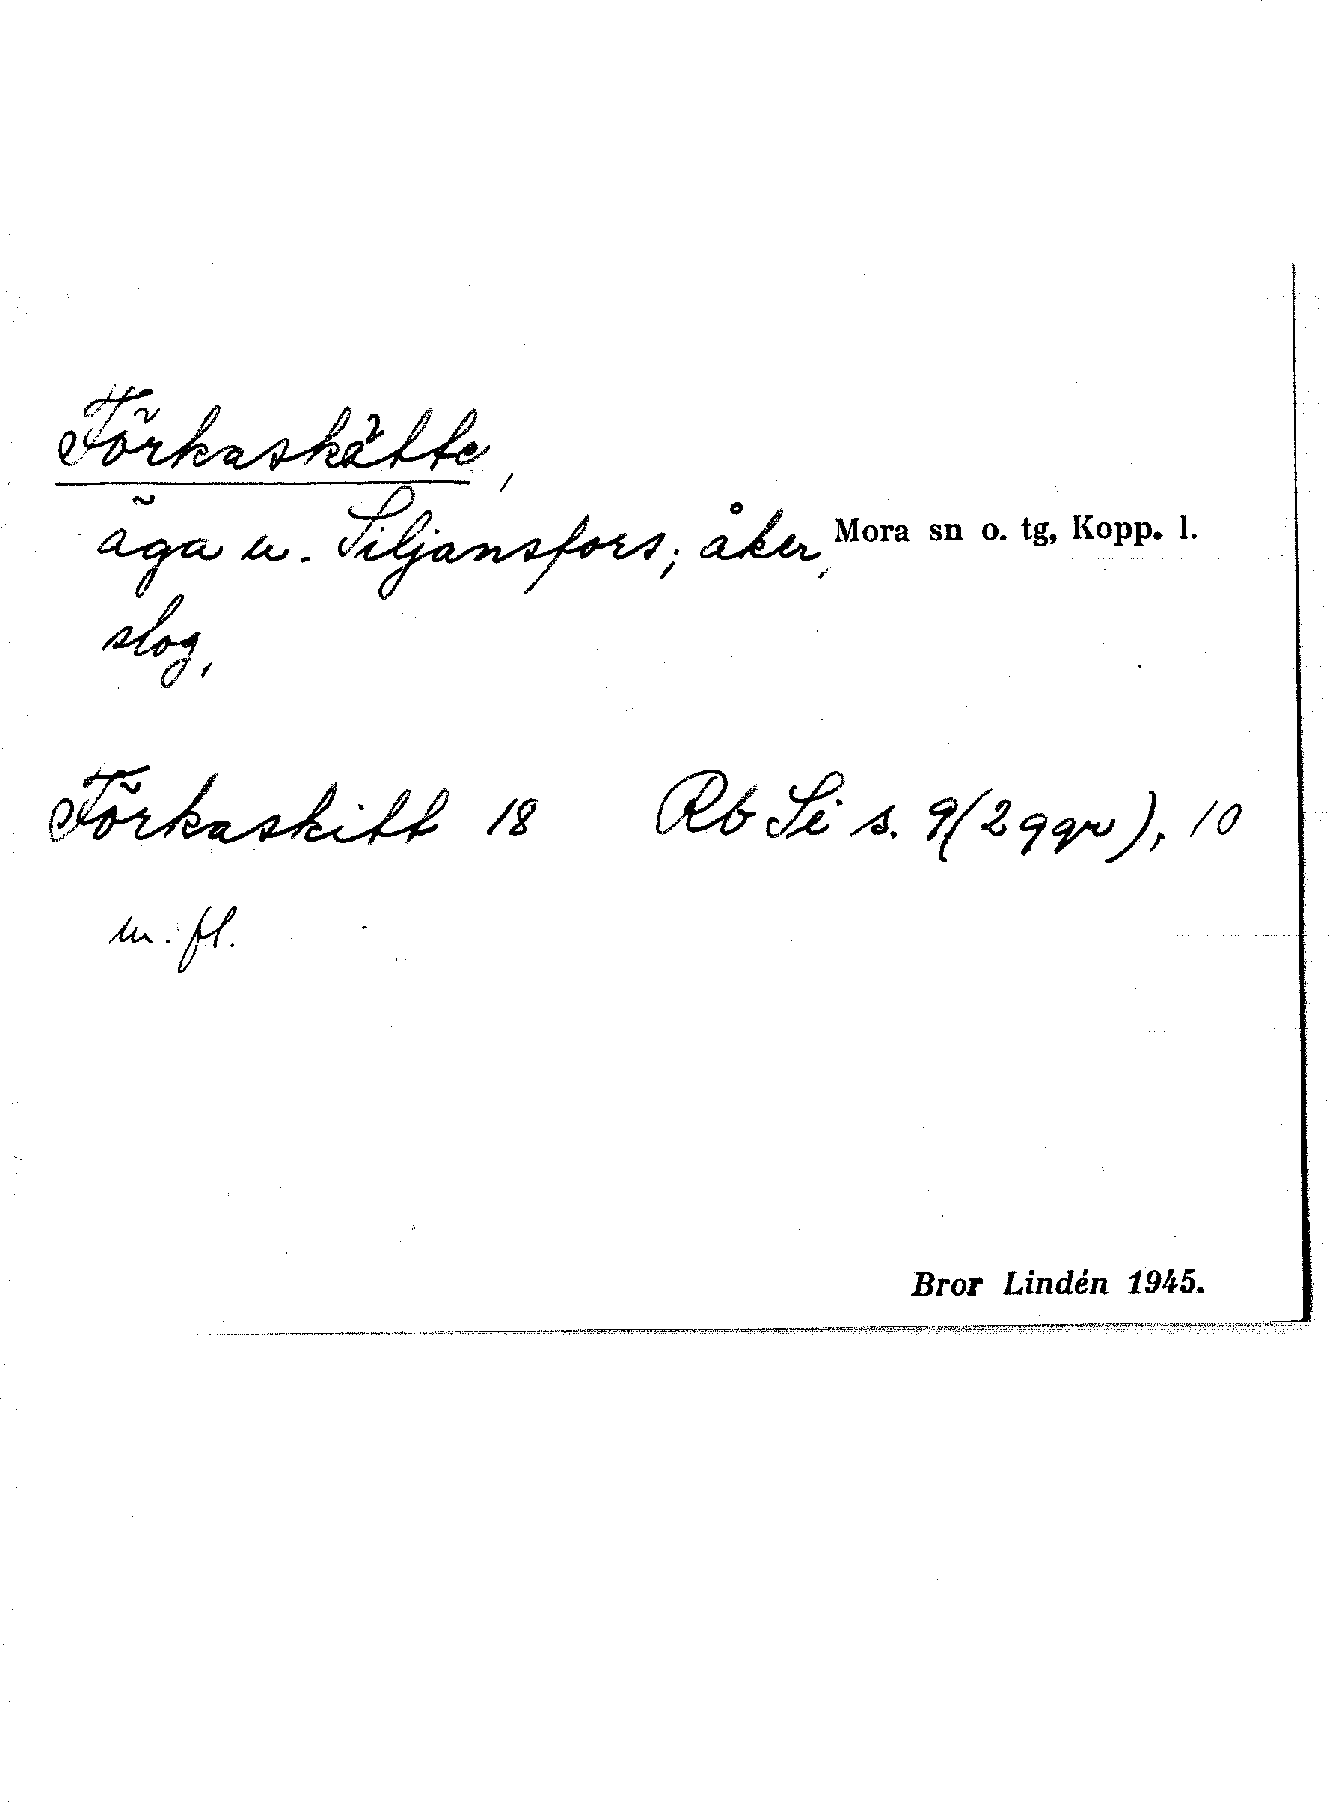 Förkaskätte,
äga u. Siljansfors; åker, Mora sn o. tg, Kopp. l.
slog,
Förkaskitt 18 Rb Si s. 9(2 ggr), 10
m. fl.
Bror Lindén 1945.